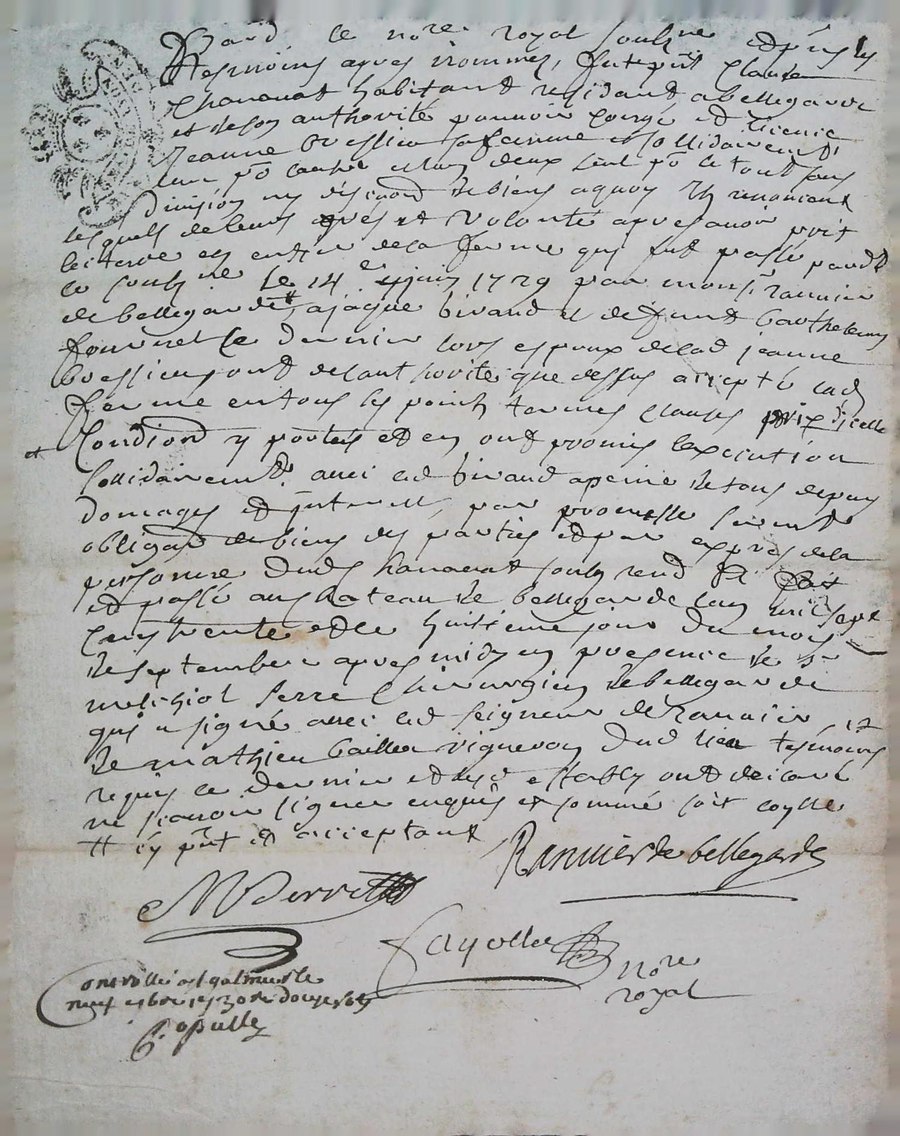 Pard. le nore royal soubne et pnts les
tesmoins apres nommes, fut pnt Claude
Chanavat habitant residant a bellegarde
et de son authorité pouvoir congé et licence
Jeanne sa femme sollidairemt
lun po lautre et un deux seul po le tout sans
division ny discution de biens a quoy ils renoncent
lesquels de leurs grés et volonté apres avoir prit
lecture en entier de la ferme qui fut passé pard
le soubne le 14e juin 1729 par monsr rannier
de bellegarde # a jaque birand et deffunt barthelemy
fournel ce dernier lors espoux de lad jeanne
ont de lauthorité que dessus accepté lad
ferme en tous les points termes clauses prix dicelle
et Condions y portées et en ont promis lexecution
sollidairemt avec led birand a peine de tous depens
domages et interests, par promesse sermt
obligaon de biens des parties et par expres de la
personne dud chanavat soubs rend fait
et passé au chateau de bellegarde lan mil sept
cens trente et le huitieme jour du mois
de septembre apres midy en presence de sr
melchiol serre Chirurgien de bellegarde
qui a signé avec led seigneur de rannier, et
de mathieu vigneron dud lieu tesmoins
requis ce dernier et ont declaré
ne scavoir signer enquis et sommé soit
# icy pnt et acceptant
Rannier de bellegarde
MSerre
fayolle
nore
royal
Controllé a st galmier le
neuf 1730 douze sols